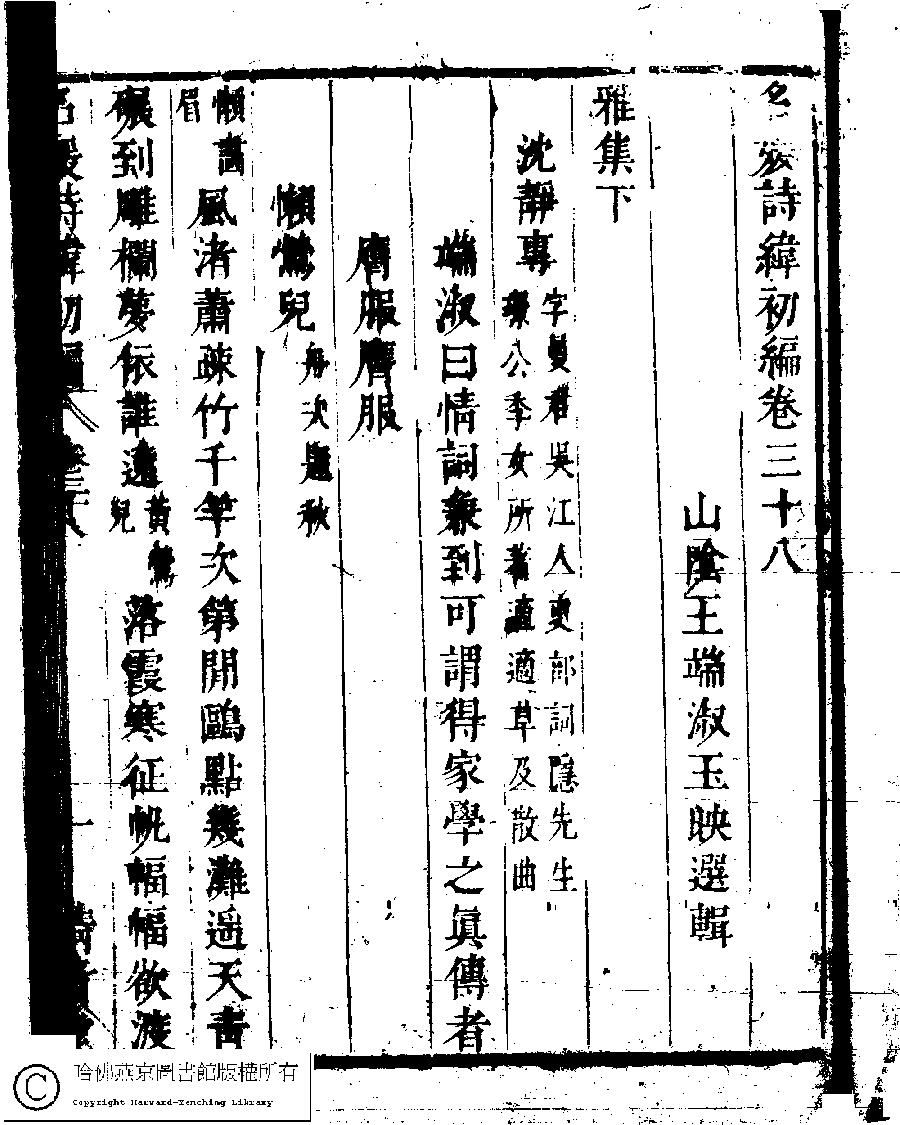 名媛詩緯初編卷三十八
山陰王端淑玉映選輯
雅集下
沈靜專
字曼君吳江人吏部詞隱先生
璟公季女所著適適草及散曲
端淑曰情詞兼到可謂得家學之眞傳者
膺服膺服
懶鶯兒
舟次題秋
懶畫
眉
風渚蕭疎竹千竿次第閒鷗點幾灘遥天青
碾到雕欄夢依誰遠
黃鶯
兒
落霞寒征帆幅幅欲渡
名媛詩緯初編
卷三十八
一
哈佛燕京圖書館版權所有
Copyright Harvard-Yenching Library